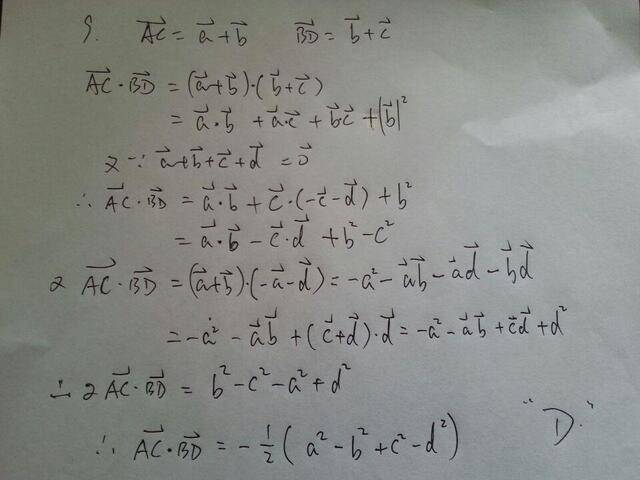 9. $\overrightarrow{AC} = \vec{a} + \vec{b}$ $\overrightarrow{BD} = \vec{b} + \vec{c}$
$\overrightarrow{AC} \cdot \overrightarrow{BD} = (\vec{a} + \vec{b}) \cdot (\vec{b} + \vec{c})$
$= \vec{a} \cdot \vec{b} + \vec{a} \cdot \vec{c} + \vec{b} \vec{c} + |\vec{b}|^2$
又∵ $\vec{a} + \vec{b} + \vec{c} + \vec{d} = \vec{0}$
∴ $\overrightarrow{AC} \cdot \overrightarrow{BD} = \vec{a} \cdot \vec{b} + \vec{c} \cdot (-\vec{c} - \vec{d}) + b^2$
$= \vec{a} \cdot \vec{b} - \vec{c} \cdot \vec{d} + b^2 - c^2$
又 $\overrightarrow{AC} \cdot \overrightarrow{BD} = (\vec{a} + \vec{b}) \cdot (-\vec{a} - \vec{d}) = -a^2 - \vec{a}\vec{b} - \vec{a}\vec{d} - \vec{b}\vec{d}$
$= -a^2 - \vec{a}\vec{b} + (\vec{c} + \vec{d}) \cdot \vec{d} = -a^2 - \vec{a}\vec{b} + \vec{c}\vec{d} + d^2$
∴ $2\overrightarrow{AC} \cdot \overrightarrow{BD} = b^2 - c^2 - a^2 + d^2$
∴ $\overrightarrow{AC} \cdot \overrightarrow{BD} = -\frac{1}{2}(a^2 - b^2 + c^2 - d^2)$ "D."